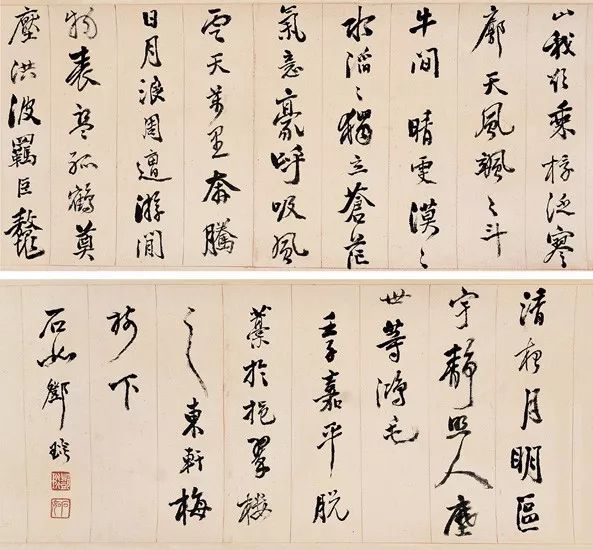 山我欲乘桴泛寥
廓天風颯々斗
牛間晴漠々
水滔々獨立蒼茫
氣意豪呼吸風
雲天萬里奔騰
日月浪周遭游閒
物表孤鶴莫
壓洪波羈巨鼇
清夜月明區
宇靜照人塵
世等鴻毛
壬子嘉平脱
藁於挹翠樓
之東軒梅
樹下
石如鄧琰